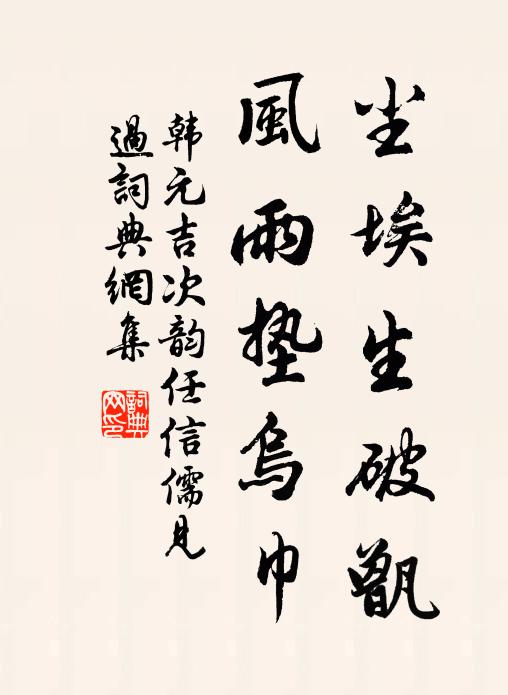 尘埃生破甑
風雨墊烏巾
韩元吉次韵任信儒見
過詞典網集
詞典
网印